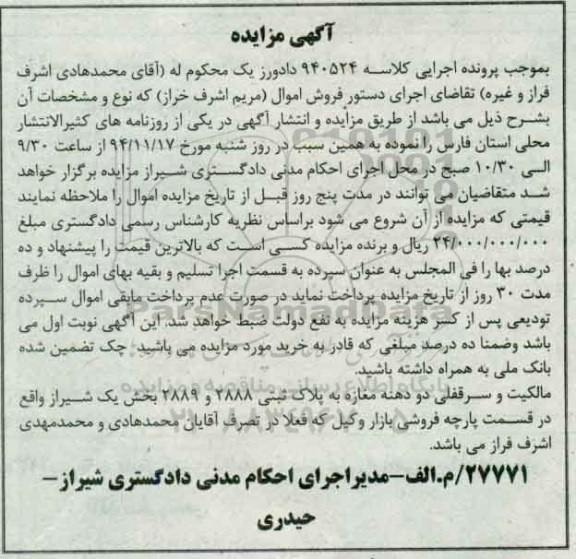 آگهی مزایده
بموجب پرونده اجرایی کلاسه ۹۴۰۵۲۴ دادورز یک محکوم له (آقای محمدهادی اشرف
فراز و غیره) تقاضای اجرای دستور فروش اموال (مریم اشرف خراز) که نوع و مشخصات آن
بشرح ذیل می باشد از طریق مزایده و انتشار آگهی در یکی از روزنامه های کثیرالانتشار
محلی استان فارس را نموده به همین سبب در روز شنبه مورخ ۹۴/۱۱/۱۷ از ساعت ۹/۳۰
الی ۱۰/۳۰ صبح در محل اجرای احکام مدنی دادگستری شیراز مزایده برگزار خواهد
شد متقاضیان می توانند در مدت پنج روز قبل از تاریخ مزایده اموال را ملاحظه نمایند
قیمتی که مزایده از آن شروع می شود براساس نظریه کارشناس رسمی دادگستری مبلغ
۲۴/۰۰۰/۰۰۰/۰۰۰ ریال و برنده مزایده کسی است که بالاترین قیمت را پیشنهاد و ده
درصد بها را فی المجلس به عنوان سپرده به قسمت اجرا تسلیم و بقیه بهای اموال را ظرف
مدت ۳۰ روز از تاریخ مزایده پرداخت نماید در صورت عدم پرداخت مابقی اموال سپرده
تودیعی پس از کسر هزینه مزایده به نفع دولت ضبط خواهد شد. این آگهی نوبت اول می
باشد وضمنا ده درصد مبلغی که قادر به خرید مورد مزایده می باشید، چک تضمین شده
بانک ملی به همراه داشته باشید.
مالکیت و سرقفلی دو دهنه مغازه به پلاک ثبتی ۲۸۸۸ و ۲۸۸۹ بخش یک شیراز واقع
در قسمت پارچه فروشی بازار وکیل که فعلا در تصرف آقایان محمدهادی و محمدمهدی
اشرف فراز می باشد.
۲۷۷۷۱/م.الف-مدیراجرای احکام مدنی دادگستری شیراز-
حیدری
ParsNamadData